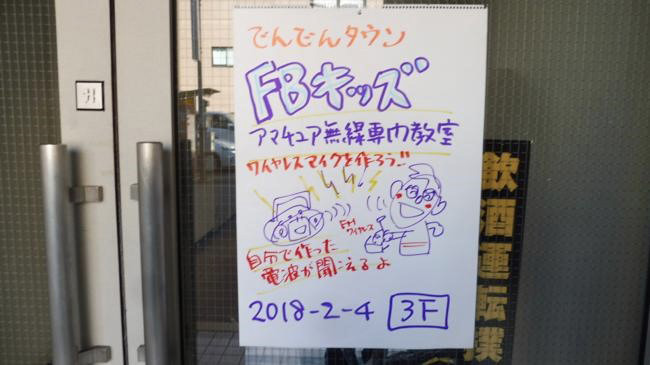 でんでんタウン
FBキッズ
アマチュア無線専門教室
ワイヤレスマイクを作ろう!!
FM
ワイヤレス
自分で作った
電波が聞こえるよ
2018-2-4 3F
引
飲酒運転撲